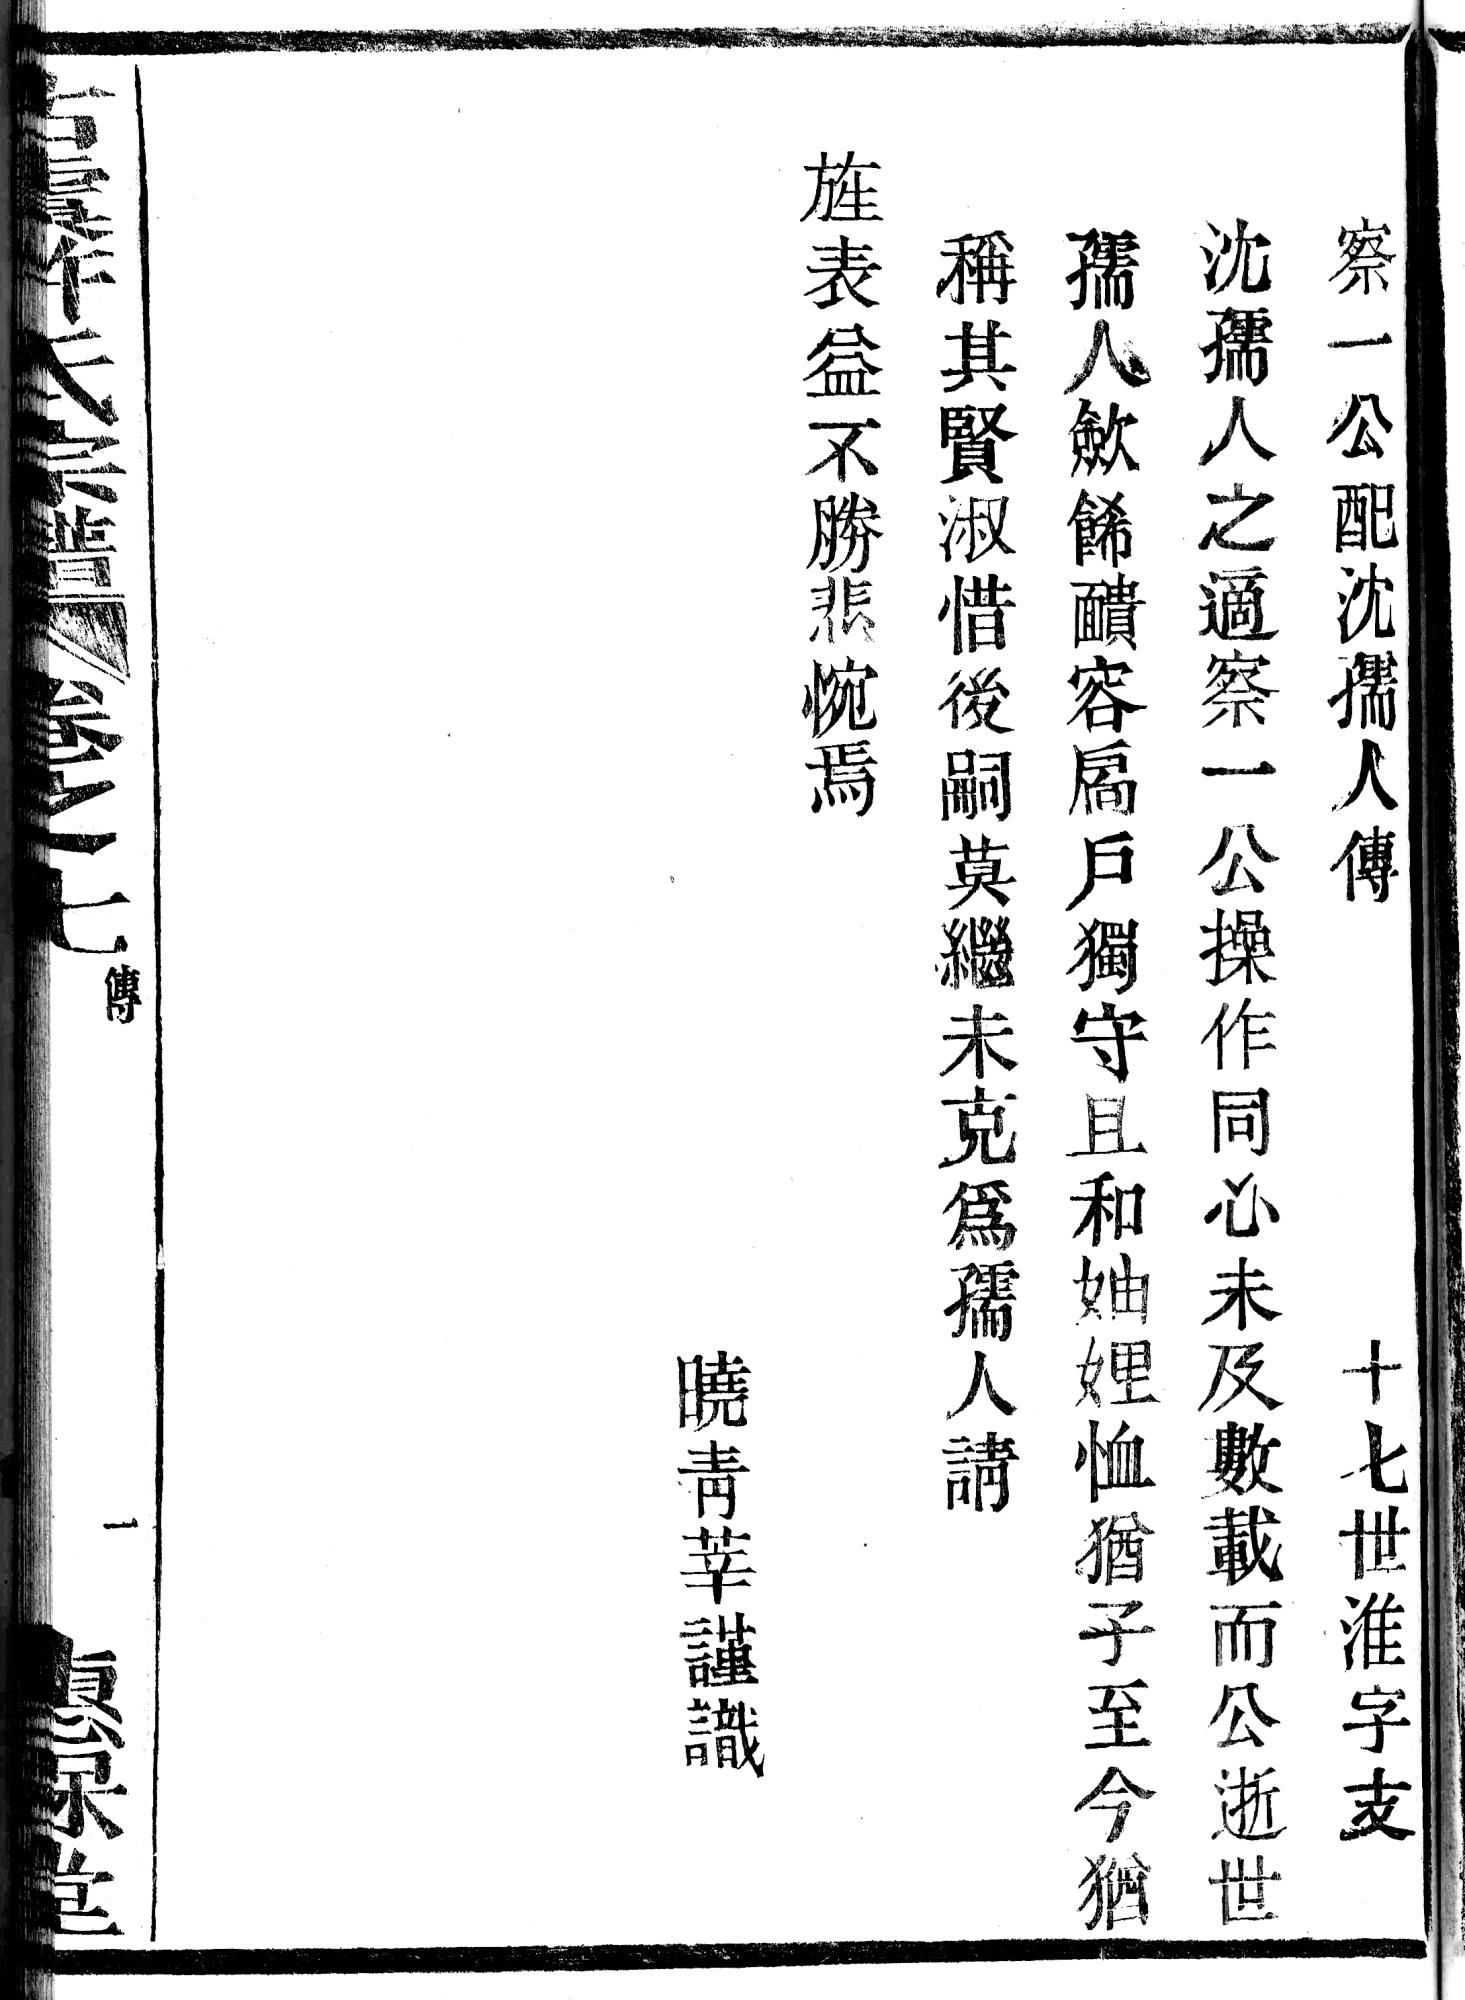 察一公配沈孺人傳　十七世淮字支
沈孺人之適察一公操作同心未及數載而公逝世
孺人歛餙靧容扃戶獨守且和妯娌恤猶子至今猶
稱其賢淑惜後嗣莫繼未克爲孺人請
旌表益不勝悲惋焉
曉青莘謹識
氏宗譜
卷之七
傳
一
堂